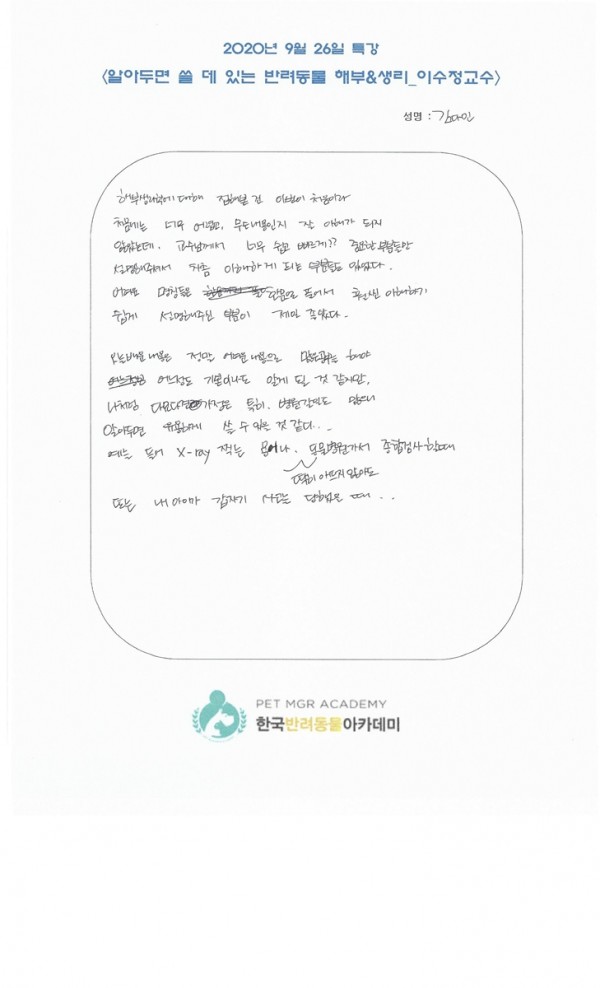 2020년 9월 26일 특강
<알아두면 쓸 데 있는 반려동물 해부&생리_이수정교수>
성명 : 김다인
해부생리학에 대해 접해볼 건 이번이 처음이라
처음에는 너무 어렵고, 무슨내용인지 잘 이해가 되지
않았는데, 교수님께서 너무 쉽고 빠르게?? 중요한 부분들만
설명해주셔서 차츰 이해하게 되는 부분들도 있었다.
어려운 명칭들은 풀어서 훨씬 이해하기
쉽게 설명해주신 부분이 제일 좋았다.
오늘배운 내용은 정말 어려운 내용으로 해야
어느정도 기본이나도 알게 될 것 같지만,
나처럼 가정은 특히, 병원갈일도 많으니
알아두면 유용하게 쓸 수 있는 것 같다...
예를 들어 X-ray 찍는 일이나, 동물병원가서 종합검사할때
딱히 아프지 않아도
또는 내 아이가 갑자기 사고를 당했을 때...
PET MGR ACADEMY
한국반려동물아카데미